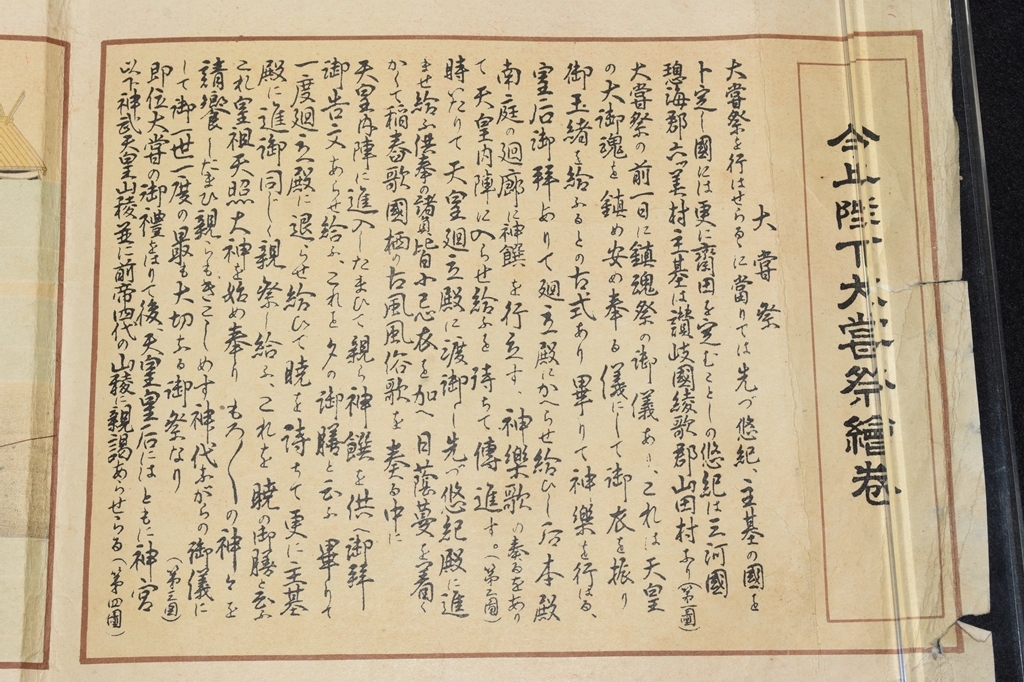 今上陛下大嘗祭繪卷
大嘗祭
大嘗祭を行はせらるゝに當りては先づ悠紀、主基の國を
卜定し國には更に齋田を定むことしの悠紀は三河國
碧海郡六ツ美村主基は讃岐國綾歌郡山田村なり(第一圖)
大嘗祭の前一日に鎮魂祭の御儀あり、これは天皇
の大御魂を鎮め安め奉る儀にして御衣を振り
御玉緒を給ふるとの古式あり畢りて神樂を行はる、
皇后御拜ありて廻立殿にかへらせ給ひし后本殿
南庭の廻廊に神饌を行立す、神樂歌の奏るをあり
て天皇内陣に入らせ給ふを待ちて傳進す。(第二圖)
時いたりて天皇廻立殿に渡御し先づ悠紀殿に進
ませ給ふ供奉の諸員皆小忌衣を加へ日蔭蔓を着く
かくて稲舂歌國栖の古風風俗歌を奏る中に
天皇内陣に進入したまひて親ら神饌を供へ御拜
御告文あらせ給ふ、これを夕の御膳と云ふ畢りて
一度廻立殿に退らせ給ひて曉を待ちて更に主基
殿に進御同じく親祭し給ふ、これを曉の御膳と云ふ
これ皇祖天照大神を始め奉りもろ〱の神々を
請饗したまひ親らもきこしめす神代ながらの御儀に
して御一世一度の最も大切なる御祭なり(第三圖)
即位大嘗の御禮をはりて後、天皇皇后にはともに神宮
以下神武天皇山稜並に前帝四代の山稜に親謁あらせらる(第四圖)